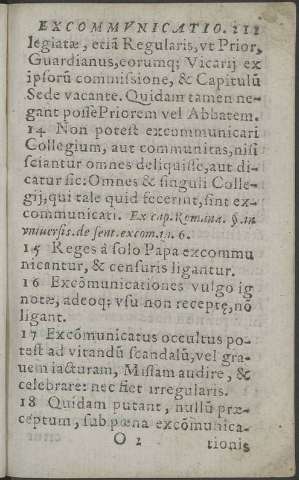 EXCOMMVNICATIO. 211
legiatæ, etiā Regularis, vt Prior,
Guardianus, eorumq; Vicarij ex
ipsorū commissione, & Capitulū
Sede vacante. Quidam tamen ne-
gant posse Priorem vel Abbatem.
14 Non potest excommunicari
Collegium, aut communitas, nisi
sciantur omnes deliquisse, aut di-
catur sic: Omnes & singuli Colle-
gij, qui tale quid fecerint, sint ex-
communicati. Ex cap. Romana. §. in
vniuersis. de sent. excom. in. 6.
15 Reges à solo Papa excommu
nicantur, & censuris ligantur.
16 Excōmunicationes vulgo ig
notæ, adeoq; vsu non receptę, nō
ligant.
17 Excōmunicatus occultus po-
test ad vitandū scandalū, vel gra-
uem iacturam, Missam audire, &
celebrare: nec fiet irregularis.
18 Quidam putant, nullū præ-
ceptum, sub pœna excōmunica-
O 2 tionis